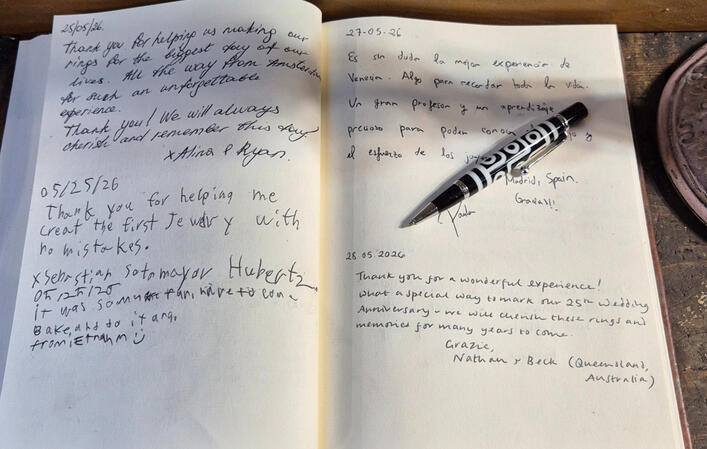 25/05/26.
Thank you for helping us making our
rings for the biggest day of our
lives. All the way from Amsterdam
for such an unforgettable
experience.
Thank you! We will always
cherish and remember this day
x Alina & Ryan.
05/25/26
Thank you for helping me
creat the first Jewlry with
no mistakes.
x Sebastian Sotomayor Hubertz.
it was so fun,
to
from: Etnahm
27-05-26
Es sin duda la mejor experiencia de
Venecia. Algo para recordar toda la vida.
Un gran profesor y un aprendizaje
precioso para poder
y
el esfuerzo de los
Madrid, Spain.
Gracias!!
28.05.2026
Thank you for a wonderful experience!
What a special way to mark our 25th Wedding
Anniversary - we will cherish these rings and
memories for many years to come.
Grazie,
Nathan & Beck (Queensland,
Australia)